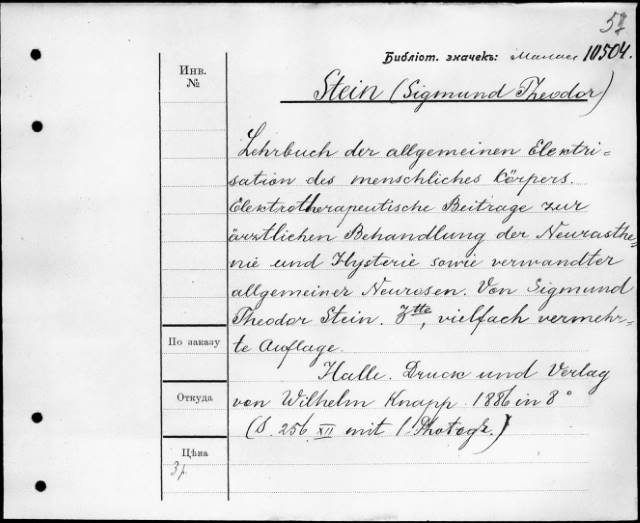 Библіот. значекъ: 10504.
Инв.
№
Stein (Sigmund Theodor)
Lehrbuch der allgemeinen Elektri=
sation des menschliches Körpers.
Elektrotherapeutische Beitrage zur
ärztlichen Behandlung der Neurasthe=
nie und Hysterie sowie verwandter
allgemeiner Neurosen. Von Sigmund
Theodor Stein. 3tte, vielfach vermehr-
te Auflage.
По заказу
Halle. Druck und Verlag
Откуда
von Wilhelm Knapp. 1886 in 8°
(S. 256. XII mit 1 Photogr.)
Цѣна
3 р